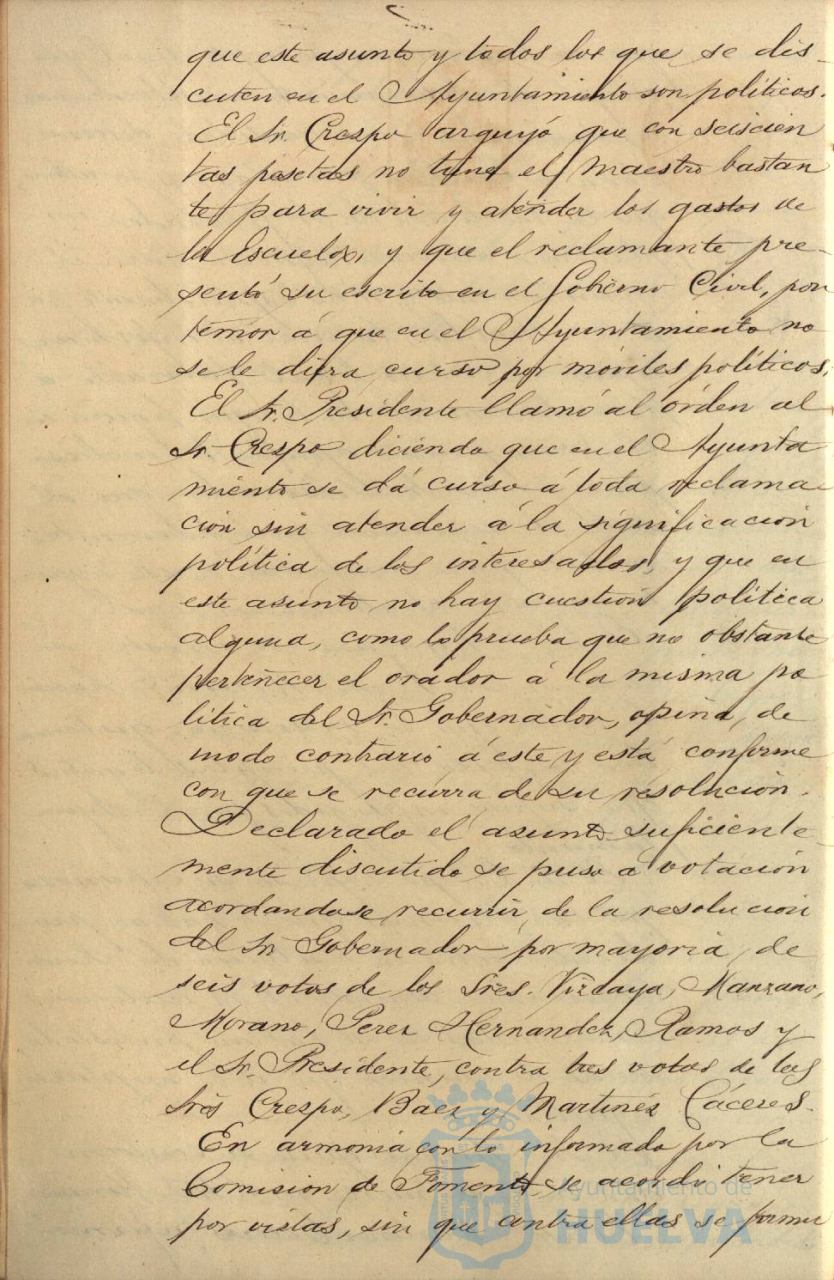 que este asunto y todos los que se dis-
cuten en el Ayuntamiento son políticos.
El Sr. Crespo arguyó que con seiscien
tas pesetas no tiene el maestro bastan
te para vivir y atender los gastos de
la Escuela, y que el reclamante pre-
sentó su escrito en el Gobierno Civil, por
temor á que en el Ayuntamiento no
se le diera curso por móviles políticos.
El Sr. Presidente llamó al órden al
Sr. Crespo diciendo que en el Ayunta
miento se dá curso á toda reclama-
cion sin atender á la significacion
política de los interesados, y que en
este asunto no hay cuestion política
alguna, como lo prueba que no obstante
pertenecer el orador á la misma po
lítica del Sr. Gobernador, opina, de
modo contrario á este y está conforme
con que se recurra de su resolucion.
Declarado el asunto suficiente
mente discutido se puso á votación
acordandose recurrir de la resolucion
del Sr. Gobernador por mayoria, de
seis votos de los Sres. Vizcaya, Manzano,
Morano, Perez Hernandez, Ramos y
el Sr. Presidente, contra tres votos de los
Sres Crespo, Baez y Martinez Cáceres.
En armonia con lo informado por la
Comision de Fomento, se acordó tener
por vistas, sin que contra ellas se formu
Ayuntamiento de
HUELVA